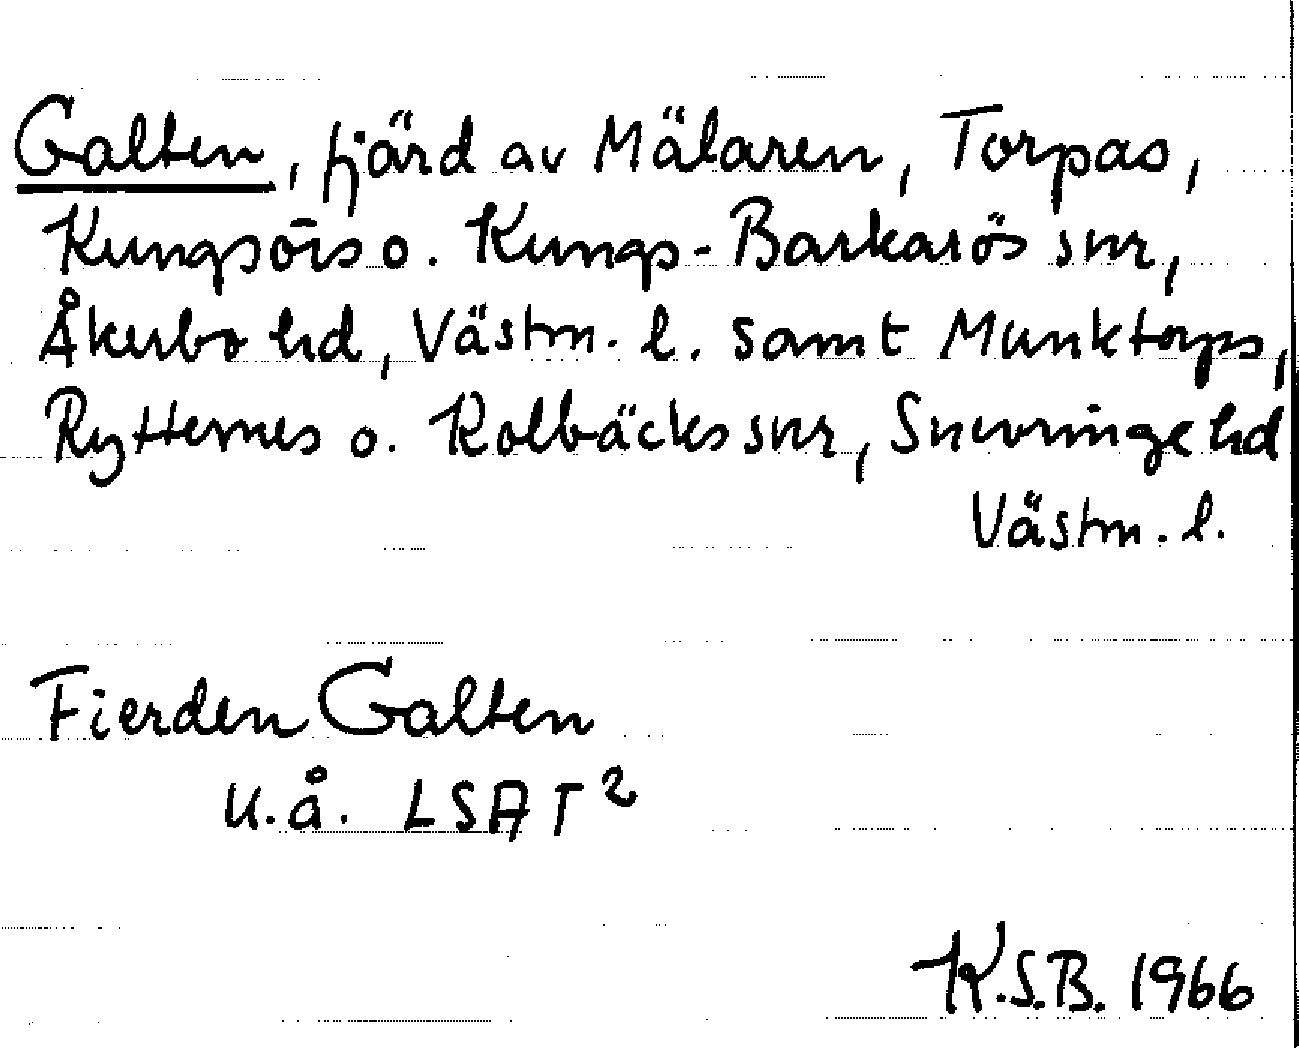 Galten, fjärd av Mälaren, Torpas,
Kungsörs o. Kungs-Barkarös snr,
Åkerbo hd, Västm. l. samt Munktorps,
Rytternes o. Kolbäcks snr, Snevringe hd
Västm. l.
Fierden Galten
u.å. LSA T²
K.S.B. 1966